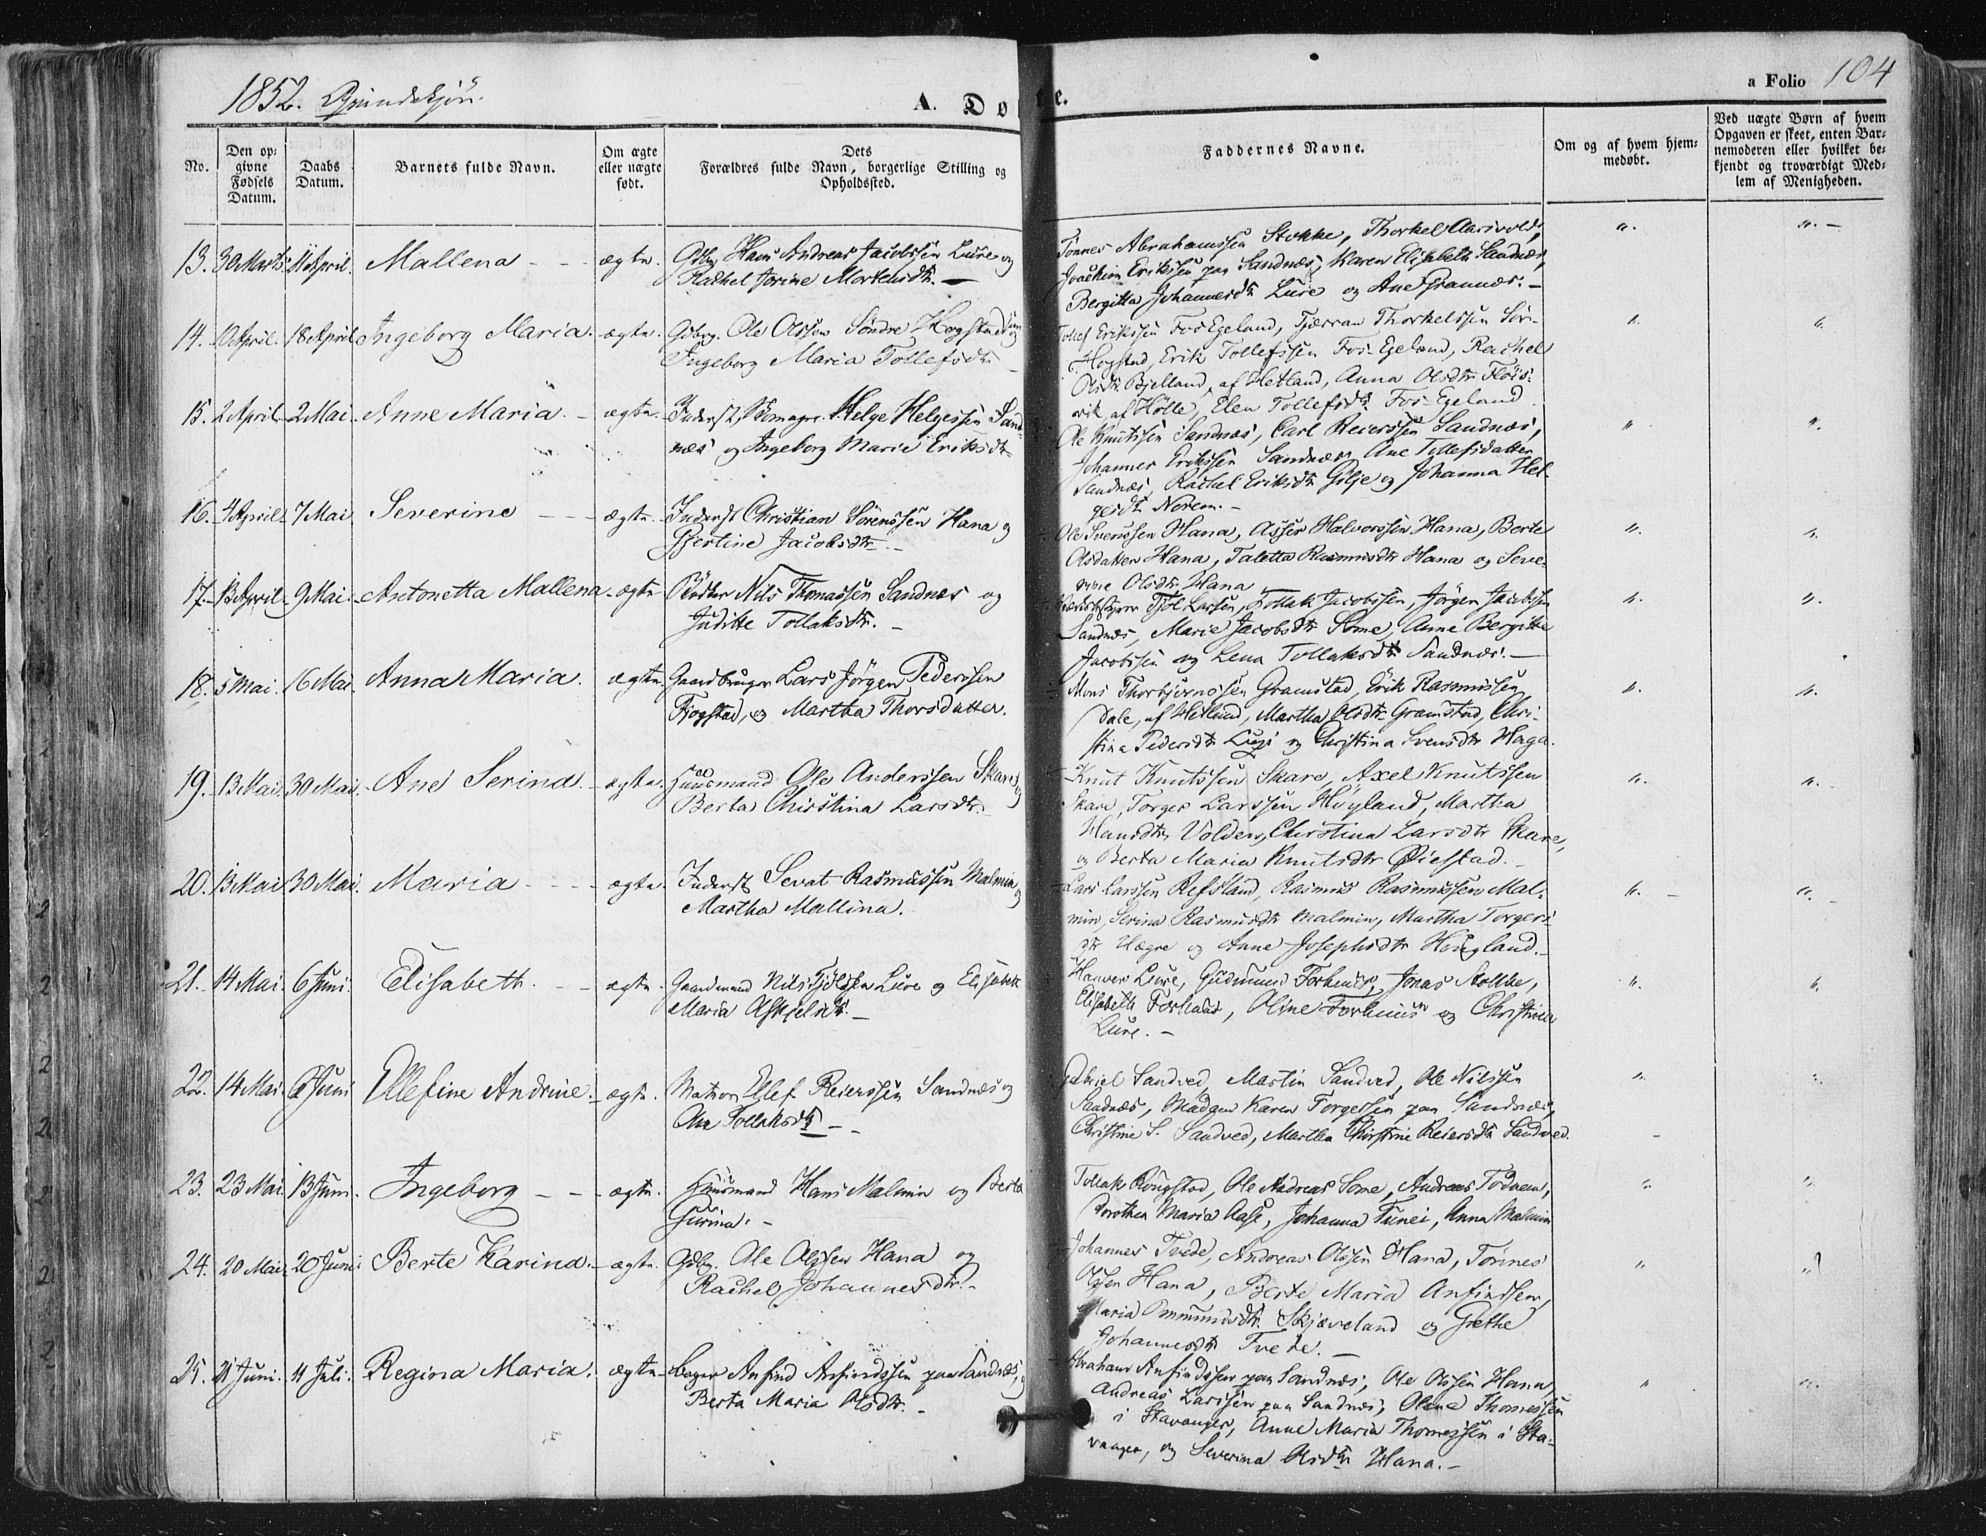 1852. Qvindekjøn.
A. Døbte.
a Folio 104
No.
Den opgivne Fødsels Datum.
Daabs Datum.
Barnets fulde Navn.
Om ægte eller uægte født.
Dets Forældres fulde Navn, borgerlige Stilling og Opholdssted.
Faddernes Navne.
Om og af hvem hjemmedøbt.
Ved uægte Børn af hvem Opgaven er skeet, enten Barnemoderen eller hvilket bekjendt og troværdigt Medlem af Menigheden.
13. 30 Marts. 11 April. Mallena - - - ægte. Gdbrg. Hans Andreas Jacobsen Lure og
Rachel Jorine Mortensdtr. -
Tønnes Abrahamssen Stokke, Thorkel Aarsvold,
Joachim Erikssen paa Sandnæs, Karen Elisabeth Sandnæs,
Bergitta Johannesdtr Lure og Ane Grannæs. -
14. April. 18 April. Ingeborg Maria. ægte. Gdbrg. Ole Olsson Søndre Hogstad og
Ingeborg Maria Tollefsdtr
Tollef Erikssen Fos-Egeland, Tjerran Thorkelssen Sør-
Hogstad, Erik Tollefssen Fos-Egeland, Rachel
Olsdtr Bjelland, af Hetland, Anna Olsdtr Fløis-
vik, af Hølle, Elen Tollefsdtr Fos-Egeland.
15. 2 April. 2 Mai. Anne Maria. - ægte. Inderst, Helge Helgessen Sand-
næs og Ingeborg Marie Eriksdtr
Ole Knutssen Sandnæs, Carl Reierssen Sandnæs,
Johannes Erikssen Sandnæs, Ane Tollefsdatter
Sandnæs, Rachel Eriksdtr Gilje og Johanna Hel-
gesdtr Norem. -
16. 4 April. 7 Mai Severine - - - ægte. Inderst Christian Sørenssen Hana og
Gjertine Jacobsdtr. -
Ole Svenssen Hana, Asser Halvorssen Hana, Berte
Olsdatter Hana, Taletta Rasmusdtr Hana og Seve-
rine Olsdtr Hana
17. 13 April. 9 Mai. Antonetta Mallena. ægte Bødker Nils Thomassen Sandnæs og
Juditte Tollaksdtr. -
Larsen, Tollak Jacobssen, Jørgen Jacobssen
Sandnæs, Marie Jacobsdtr Some, Anne Bergitte
Jacobssen og Lena Tollaksdtr Sandnæs. -
18. 5 Mai. 16 Mai. Anna Maria. ægte. Gaardbruger Lars Jørgen Pederssen
Fjogstad, og Martha Thorsdatter.
Mons Thorbjørnssen Gramstad, Erik Rasmussen
Dale, af Hetland, Martha Olsdtr Gramstad, Chri-
stina Pedersdtr og Christina Svensdtr Haga.
19. 13 Mai. 30 Mai. Ane Serina. - ægte. Huusmand Ole Anderssen Skare og
Berta Christina Larsdtr.
Knut Knutssen Skare, Axel Knutssen
Skare, Torger Larssen Høyland, Martha
Hansdtr Volden, Christina Larsdtr Skare,
og Berta Maria Knutsdtr Øiestad. -
20. 13 Mai 30 Mai. Maria - - - ægte. Inderst Sevat Rasmussen Malmin og
Martha Mallina.
Lars Larssen Refsland, Rasmus Rasmussen Mal-
min, Serina Rasmusdtr Malmin, Martha Torgers-
dtr Hægre og Anne Josephsdtr Hougland. -
21. 14 Mai. 6 Juni. Elisabeth. - - ægte. Gaardmand Nils Lure og Elisabeth
Maria. -
Lure, Gudmund, Jonas Stokke,
Elisabeth, Oline og Christine
Lure. -
22. 14 Mai. 6 Juni Ellefine Andrine. - ægte. Matros Ellef Reierssen Sandnæs og
Ane Tollaksdtr. -
Gabriel Sandved, Martin Sandved, Ole Nilssen
Sandnæs, Madam Karen Torgerssen paa Sandnæs,
Christine S. Sandved, Martha Christine Reiersdtr Sandved.
23. 23 Mai. 13 Juni. Ingeborg - - - ægte. Huusmand Hans Malmin og Berta
Gurina. -
Tollak Rougstad, Ole Andreas Some, Andreas Todnem,
Dorothea Maria Aase, Johanna Tunei, Anna Malmin
24. 20 Mai. 20 Juni. Berte Karina. - ægte. Gdbg. Ole Olssen Hana og
Rachel Johannesdtr. -
Johannes Tvede, Andreas Olssen Hana, Tønnes
Olssen Hana, Berte Maria Anfindsen,
Maria Ommundsdtr Skjæveland og Grethe
Johannesdtr Tvede. -
25. 21 Juni. 11 Juli. Regina Maria. ægte. Anfind Anfindssen paa Sandnæs, og
Berta Maria Olsdtr. -
Abraham Anfindssen paa Sandnæs, Ole Olssen Hana,
Andreas Larssen paa Sandnæs, Olena Thomessen
i Stavanger, Anne Maria Thomessen i Sta-
vanger, og Severina Olsdtr Hana. -